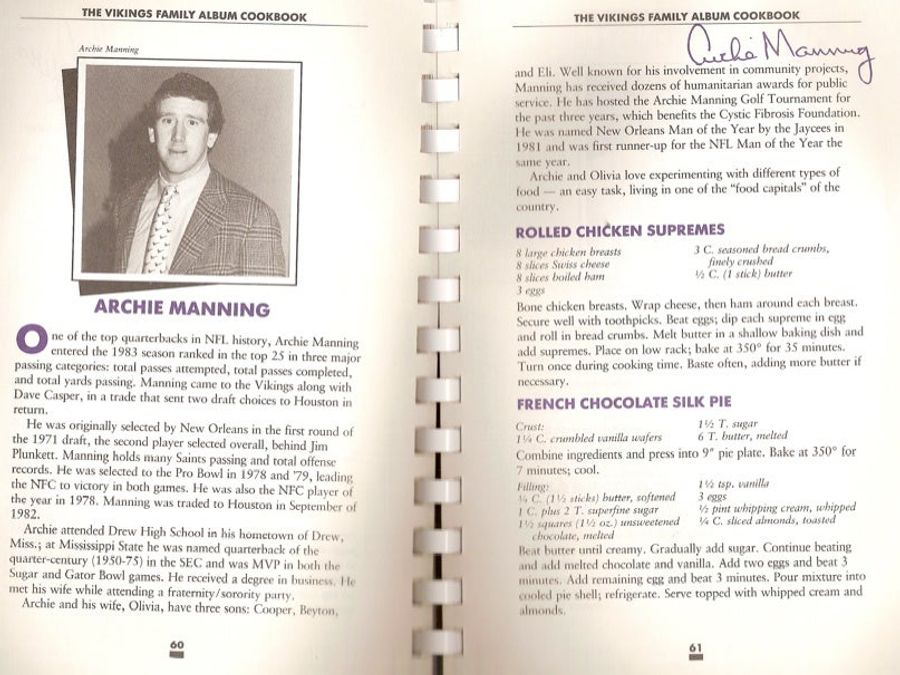 THE VIKINGS FAMILY ALBUM COOKBOOK
Archie Manning
ARCHIE MANNING
One of the top quarterbacks in NFL history, Archie Manning
entered the 1983 season ranked in the top 25 in three major
passing categories: total passes attempted, total passes completed,
and total yards passing. Manning came to the Vikings along with
Dave Casper, in a trade that sent two draft choices to Houston in
return.
He was originally selected by New Orleans in the first round of
the 1971 draft, the second player selected overall, behind Jim
Plunkett. Manning holds many Saints passing and total offense
records. He was selected to the Pro Bowl in 1978 and '79, leading
the NFC to victory in both games. He was also the NFC player of
the year in 1978. Manning was traded to Houston in September of
1982.
Archie attended Drew High School in his hometown of Drew,
Miss.; at Mississippi State he was named quarterback of the
quarter-century (1950-75) in the SEC and was MVP in both the
Sugar and Gator Bowl games. He received a degree in business. He
met his wife while attending a fraternity/sorority party.
Archie and his wife, Olivia, have three sons: Cooper, Beyton,
60
THE VIKINGS FAMILY ALBUM COOKBOOK
Archie Manning
and Eli. Well known for his involvement in community projects,
Manning has received dozens of humanitarian awards for public
service. He has hosted the Archie Manning Golf Tournament for
the past three years, which benefits the Cystic Fibrosis Foundation.
He was named New Orleans Man of the Year by the Jaycees in
1981 and was first runner-up for the NFL Man of the Year the
same year.
Archie and Olivia love experimenting with different types of
food — an easy task, living in one of the "food capitals" of the
country.
ROLLED CHICKEN SUPREMES
8 large chicken breasts
8 slices Swiss cheese
8 slices boiled ham
3 eggs
3 C. seasoned bread crumbs,
finely crushed
½ C. (1 stick) butter
Bone chicken breasts. Wrap cheese, then ham around each breast.
Secure well with toothpicks. Beat eggs; dip each supreme in egg
and roll in bread crumbs. Melt butter in a shallow baking dish and
add supremes. Place on low rack; bake at 350° for 35 minutes.
Turn once during cooking time. Baste often, adding more butter if
necessary.
FRENCH CHOCOLATE SILK PIE
Crust:
1¼ C. crumbled vanilla wafers
1½ T. sugar
6 T. butter, melted
Combine ingredients and press into 9" pie plate. Bake at 350° for
7 minutes; cool.
Filling:
¾ C. (1½ sticks) butter, softened
1 C. plus 2 T. superfine sugar
1½ squares (1½ oz.) unsweetened
chocolate, melted
1½ tsp. vanilla
3 eggs
½ pint whipping cream, whipped
¼ C. sliced almonds, toasted
Beat butter until creamy. Gradually add sugar. Continue beating
and add melted chocolate and vanilla. Add two eggs and beat 3
minutes. Add remaining egg and beat 3 minutes. Pour mixture into
cooled pie shell; refrigerate. Serve topped with whipped cream and
almonds.
61